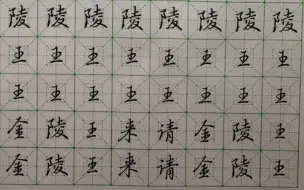 陵陵陵陵陵陵陵
王王王王王王王
王王王王王王王
金陵王来请金陵王
金陵王来请金陵王